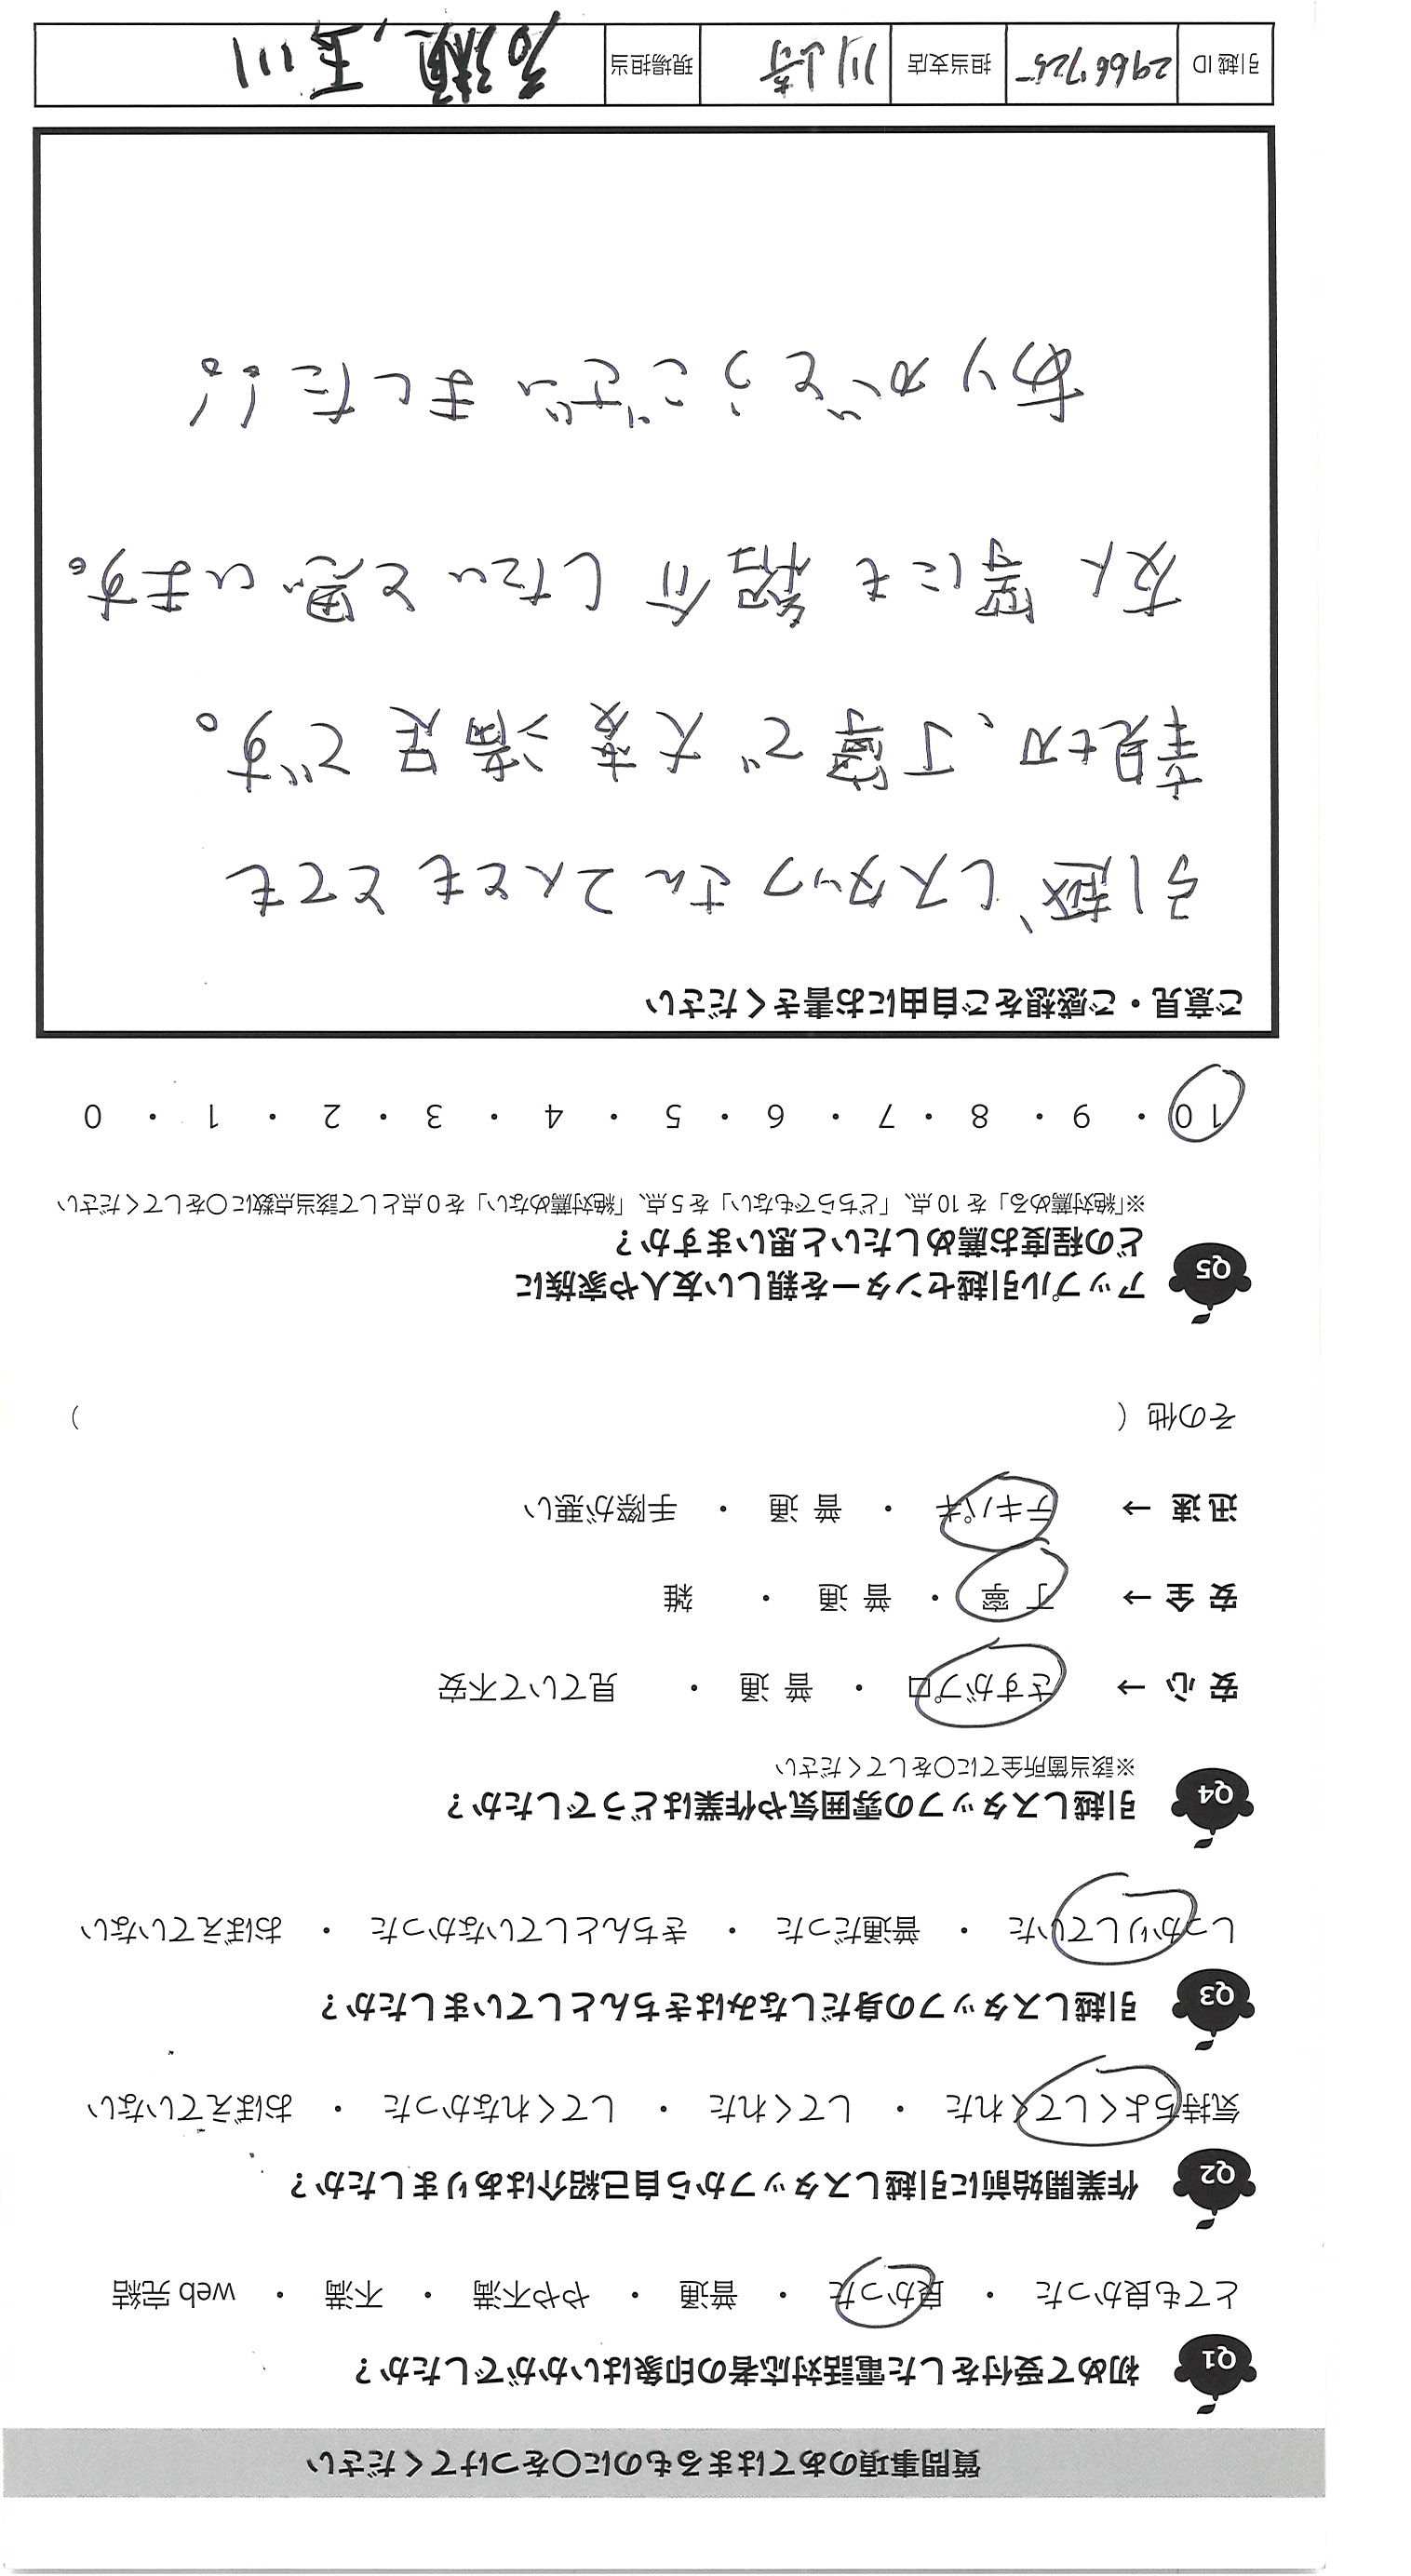 質問事項のあてはまるものに○をつけてください
Q1 初めて受付をした電話対応者の印象はいかがでしたか？
とても良かった ・ 良かった ・ 普通 ・ やや不満 ・ 不満 ・ web 完結
Q2 作業開始前に引越しスタッフから自己紹介はありましたか？
気持ちよくしてくれた ・ してくれた ・ してくれなかった ・ おぼえていない
Q3 引越しスタッフの身だしなみはきちんとしていましたか？
しっかりしていた ・ 普通だった ・ きちんとしていなかった ・ おぼえていない
Q4 引越しスタッフの雰囲気や作業はどうでしたか？
※該当箇所全てに○をしてください
安 心 → さすがプロ ・ 普 通 ・ 見ていて不安
安 全 → 丁 寧 ・ 普 通 ・ 雑
迅 速 → テキパキ ・ 普 通 ・ 手際が悪い
その他（ ）
Q5 アップル引越センターを親しい友人や家族に
どの程度お薦めしたいと思いますか？
※「絶対薦める」を 10 点、「どちらでもない」を 5 点、「絶対薦めない」を 0 点として該当点数に○をしてください
10 ・ 9 ・ 8 ・ 7 ・ 6 ・ 5 ・ 4 ・ 3 ・ 2 ・ 1 ・ 0
ご意見・ご感想をご自由にお書きください
引越しスタッフさん2人ともとても
親切、丁寧で大変満足です。
友人等にも紹介したいと思います。
ありがとうございました!!
引越 ID 2966725 担当支店 川崎 現場担当 玉川